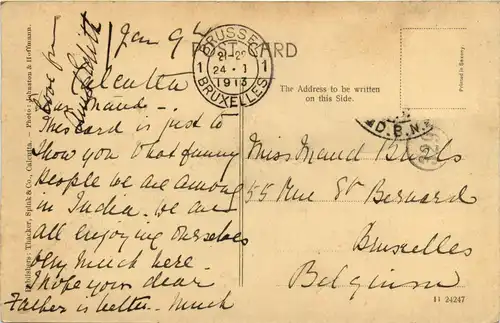 Jan 9th
POST CARD
BRUSSEL
1 21-22 1
24 - 1
1913
BRUXELLES
Calcutta
Dear Maud -.
This card is just to
show you what funny
people we are among
in India. We are
all enjoying ourselves
very much here.
I hope your dear
Father is better - Much
love from
Aunt
Publishers: Thacker, Spink & Co., Calcutta. - Photo: Johnston & Hoffmann.
The Address to be written
on this Side.
Printed in Saxony.
D.B.N.
Miss Maud
55 Rue St Bernard
Bruxelles
Belgium
11 24247